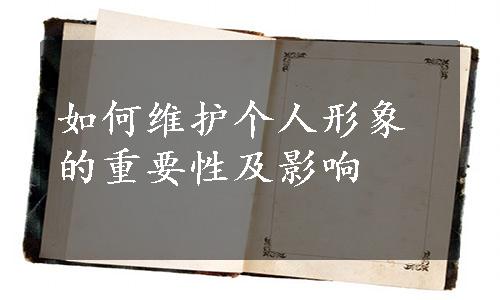 如何维护个人形象
的重要性及影响